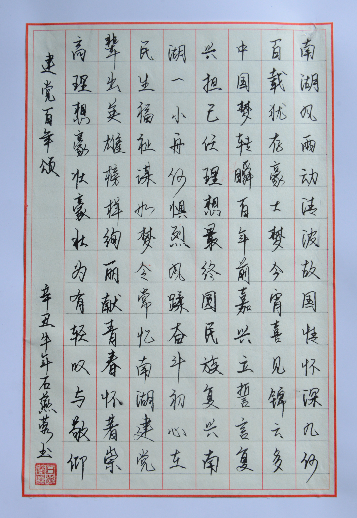 南湖风雨动清波故国情怀深几何
百载犹存豪士梦今宵喜见锦云多
中国梦转瞬百年前嘉兴立誓言复
兴担已任理想最终圆民族复兴南
湖一小舟何惧烈风蹂奋斗初心在
民生福祉谋如梦令常忆南湖建党
辈出英雄榜样绚丽献青春怀着崇
高理想豪壮豪壮为有轻叹与敬仰
建党百年颂
辛丑牛年石燕书